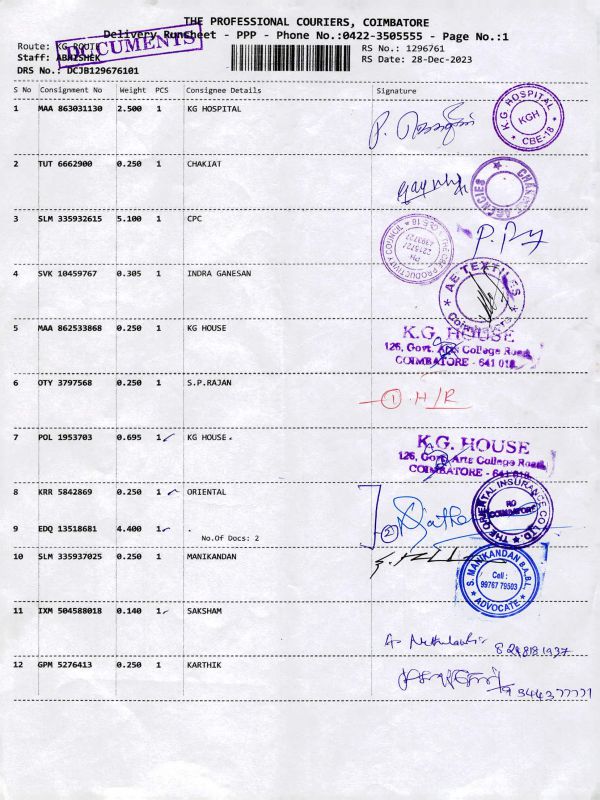 THE PROFESSIONAL COURIERS, COIMBATORE
Delivery RunSheet - PPP - Phone No.:0422-3505555 - Page No.:1
DOCUMENTS
Route: KG ROUTE
RS No.: 1296761
Staff: ABAISHEK
RS Date: 28-Dec-2023
DRS No.: DCJB129676101
S No Consignment No Weight PCS Consignee Details Signature
1 MAA 863031130 2.500 1 KG HOSPITAL
K.G HOSPITAL
KGH
CBE-18
2 TUT 6662900 0.250 1 CHAKIAT
AGENCIES
3 SLM 335932615 5.100 1 CPC
PRODUCTIVITY COUNCIL
PH
4 SVK 10459767 0.305 1 INDRA GANESAN
AE TEXTILES
5 MAA 862533868 0.250 1 KG HOUSE
K.G. HOUSE
126, Govt. Arts College Road,
COIMBATORE - 641 018.
6 OTY 3797568 0.250 1 S.P.RAJAN
① H/R
7 POL 1953703 0.695 1 KG HOUSE.
K.G. HOUSE
126, Govt. Arts College Road,
COIMBATORE - 641 018
8 KRR 5842869 0.250 1 ORIENTAL
THE ORIENTAL INSURANCE CO LTD.
RO
COIMBATORE
②
9 EDQ 13518681 4.400 1 .
No.Of Docs: 2
10 SLM 335937025 0.250 1 MANIKANDAN
S. MANIKANDAN B.A.B.L.
Cell :
99767 79503
ADVOCATE
11 IXM 504588018 0.140 1 SAKSHAM
12 GPM 5276413 0.250 1 KARTHIK